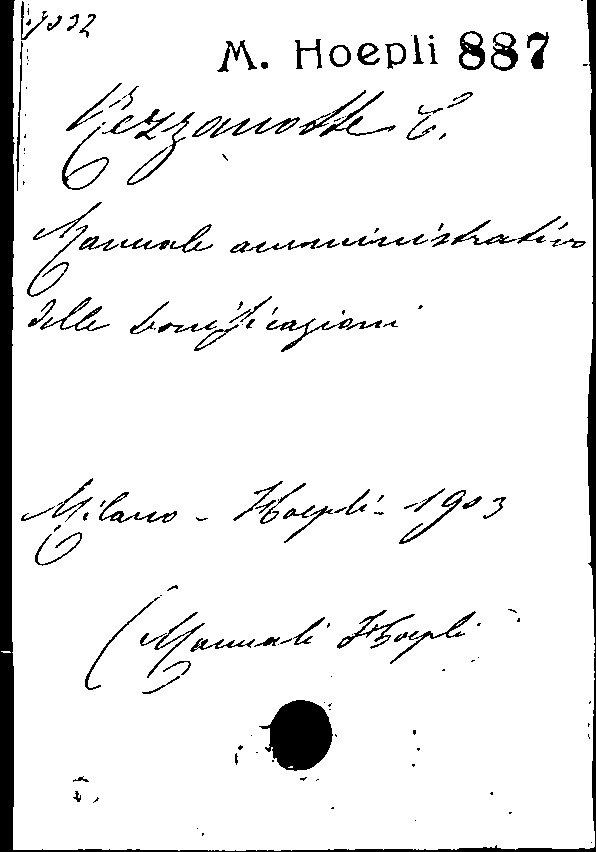 M. Hoepli 887
Mezzanotte C.
Manuale amministrativo
delle bonificazioni
Milano - Hoepli - 1903
(Manuali Hoepli